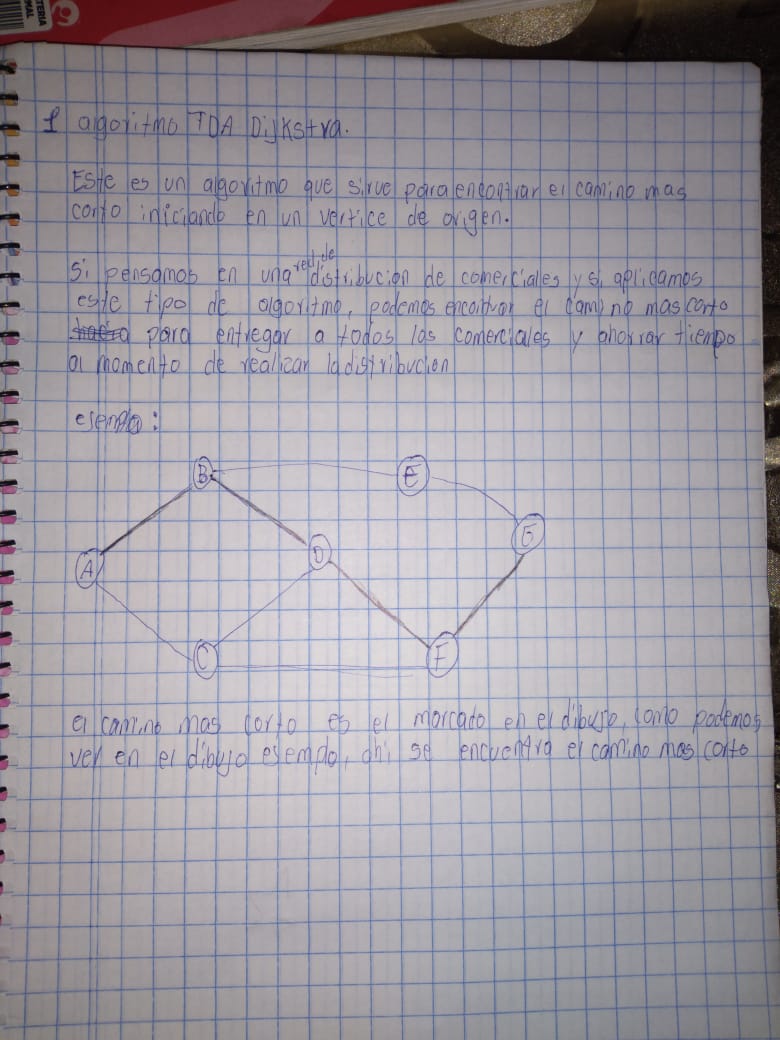 TERIA
MAL
1 algoritmo TDA Dijkstra.
Este es un algoritmo que sirve para encontrar el camino mas
corto iniciando en un vertice de origen.
Si pensamos en una red de distribucion de comerciales y si aplicamos
este tipo de algoritmo, podemos encontrar el camino mas corto
para entregar a todos los comerciales y ahorrar tiempo
al momento de realizar la distribucion
esemplo:
B
E
G
D
A
C
F
el camino mas corto es el marcado en el dibujo, como podemos
ver en el dibujo esemplo, ahi se encuentra el camino mas corto